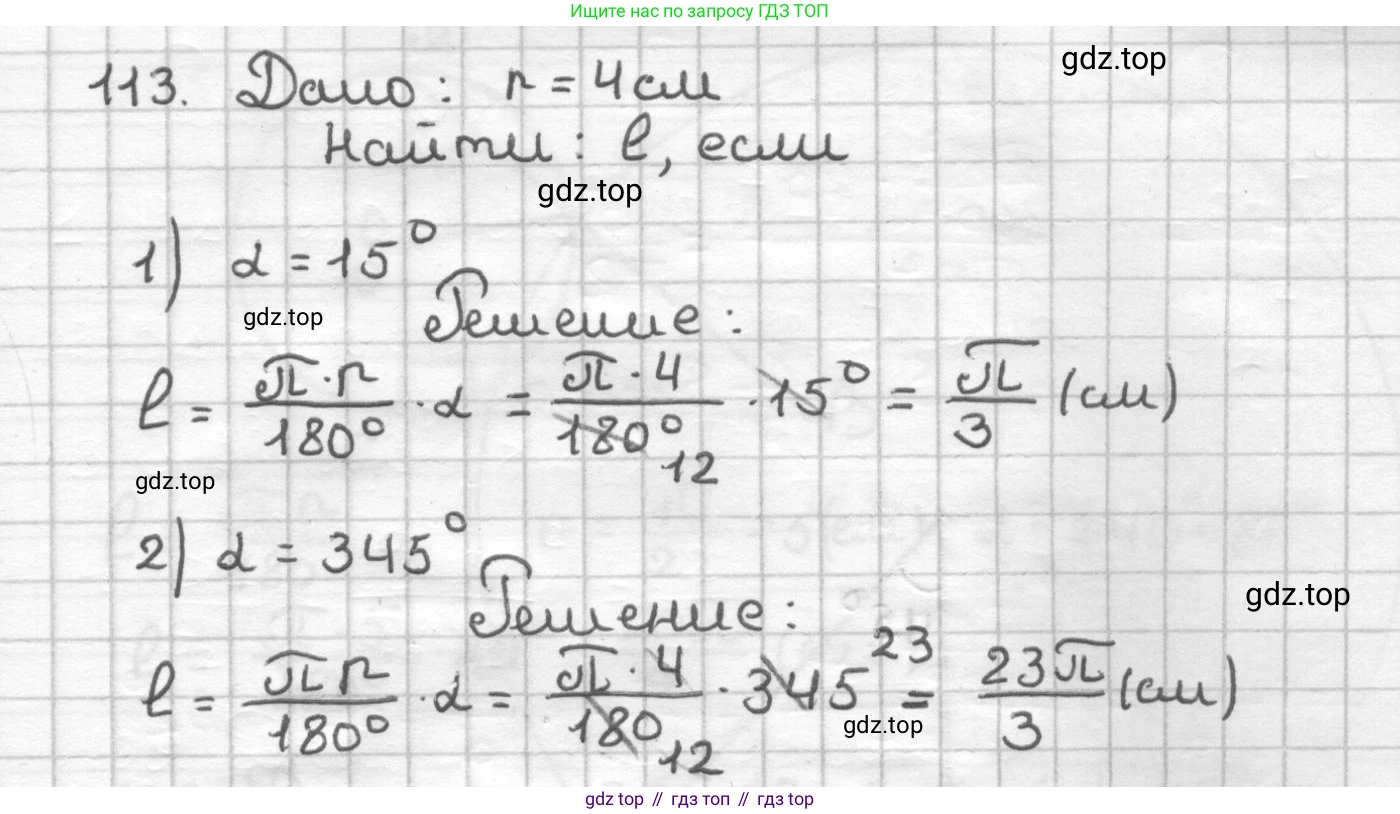 Ищите нас по запросу ГДЗ ТОП
113. Дано: r = 4 см
gdz.top
Найти: l, если
gdz.top
1) α = 15°
gdz.top
Решение:
l = π·r/180° · α = π·4/180° 12 · 15° = π/3 (см)
gdz.top
2) α = 345°
gdz.top
Решение:
l = πr/180° · α = π·4/180 12 · 345 23 = 23π/3 (см)
gdz.top
gdz top // гдз топ // gdz top